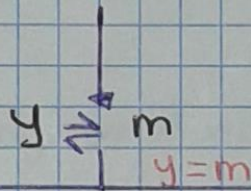 y ⇌ m
y = m